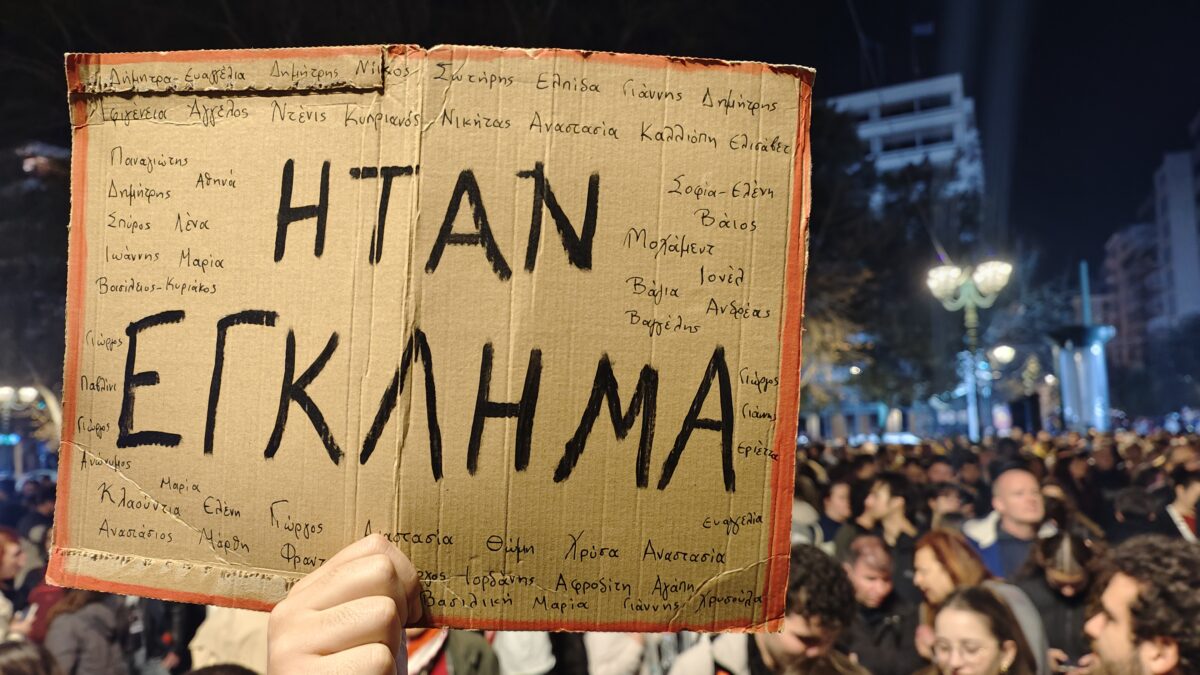 Δήμητρα-Ευαγγελία Δημήτρης Νίκος Σωτήρης Ελπίδα Γιάννης Δημήτρης
Ιφιγένεια Άγγελος Ντένις Κυπριανός Νικήτας Αναστασία Καλλιόπη Ελισάβετ
Παναγιώτης
Δημήτρης Αθηνά
Σπύρος Λένα
Ιωάννης Μαρία
Βασίλειος-Κυριάκος
Σοφία-Ελένη
Βάιος
Μοχάμεντ
Ιονέλ
Βάγια Ανδρέας
Βαγγέλης
ΗΤΑΝ
ΕΓΚΛΗΜΑ
Γιώργος
Παβλίνι
Γιώργος
Ανώνυμος
Γιώργος
Γιάννης
Εριέττα
Μαρία
Κλαούντια Ελένη Γιώργος
Ευαγγελία
Αναστάσιος Μάρθη Αναστασία Θώμη Χρύσα Αναστασία
Ιορδάνης Αφροδίτη Αγάπη
Βασιλική Μαρία Γιάννης Χρυσούλα